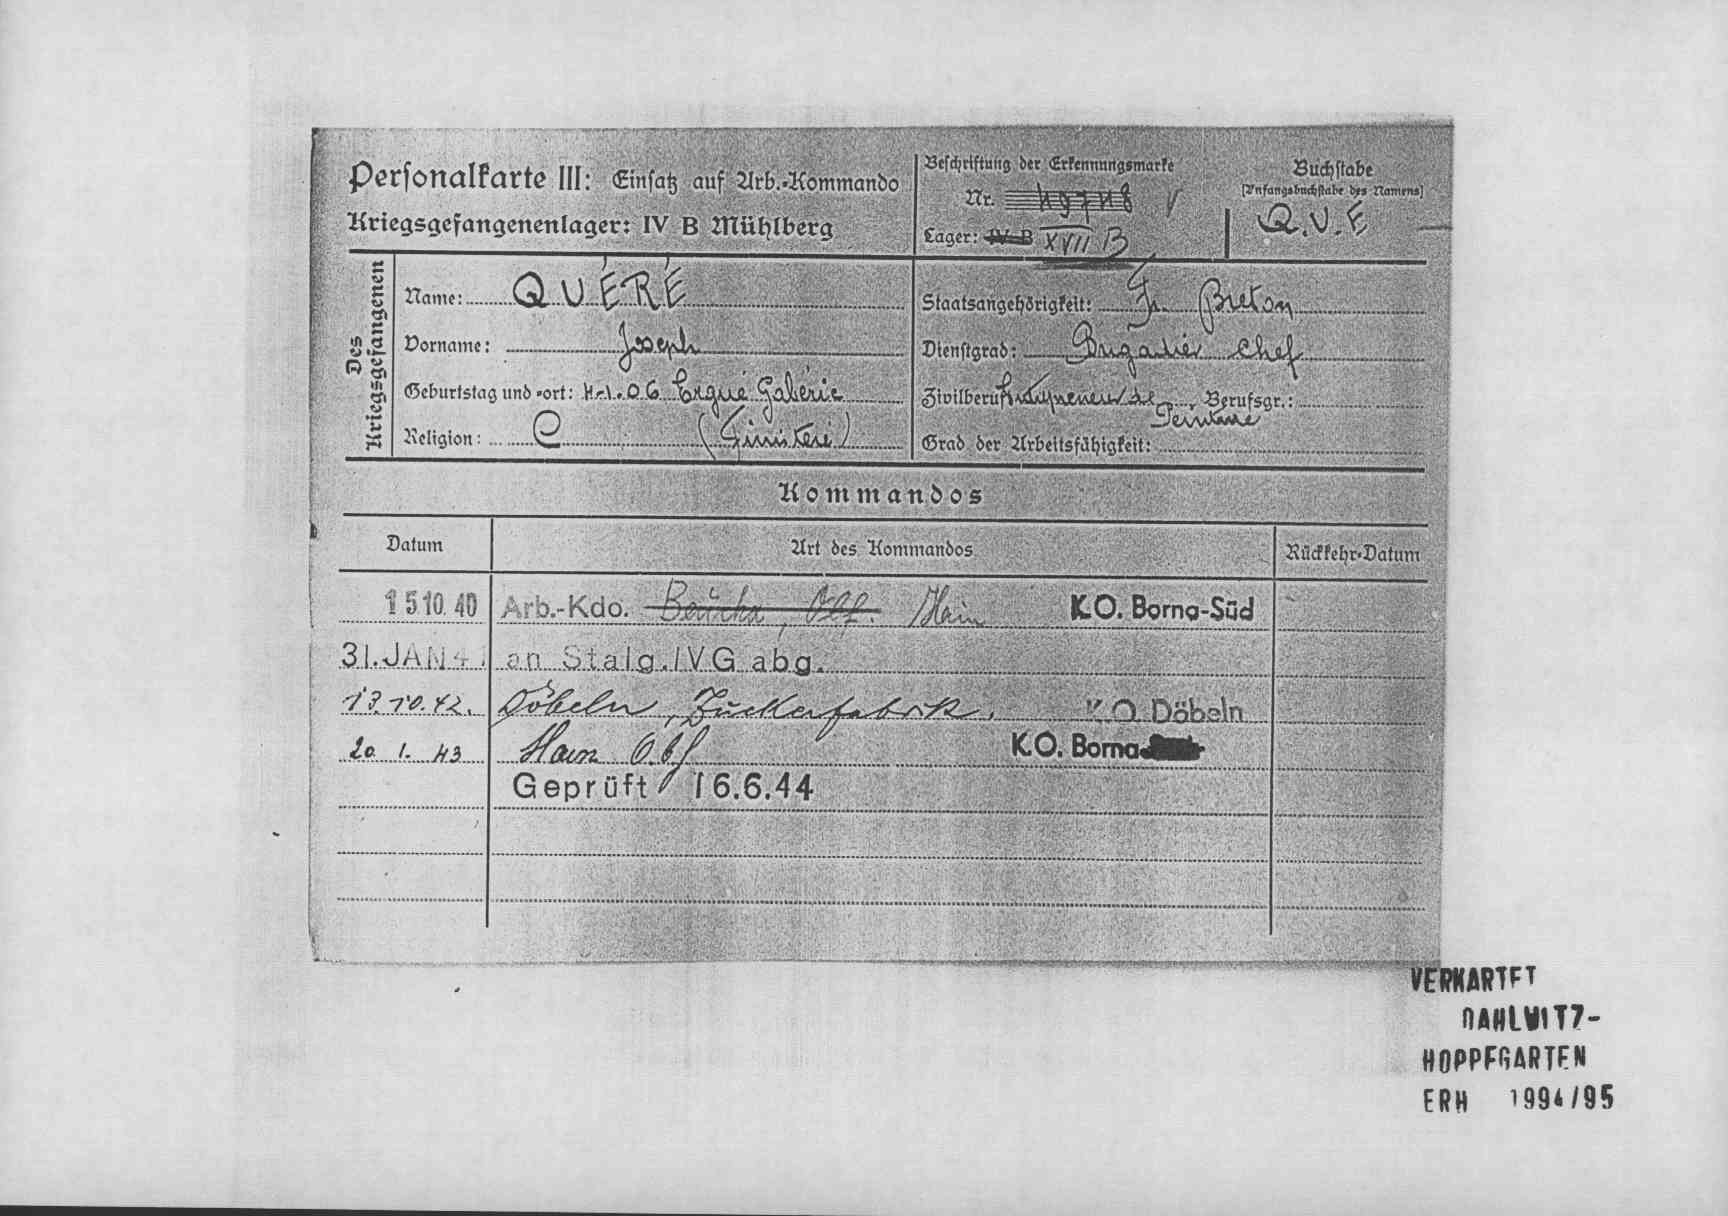 Personalkarte III: Einsatz auf Arb.-Kommando
Kriegsgefangenenlager: IV B Mühlberg
Beschriftung der Erkennungsmarke
Nr. 49748
Lager: IV B XVII B
Buchstabe
(Anfangsbuchstabe des Namens)
Q.U.E
Des Kriegsgefangenen
Name: QUÉRÉ
Vorname: Joseph
Geburtstag und -ort: 4.1.06 Ergué Gabéric
Religion: C (Finistère)
Staatsangehörigkeit: Fr. Breton
Dienstgrad: Brigadier Chef
Zivilberuf: Entrepreneur de Peinture Berufsgr.:
Grad der Arbeitsfähigkeit:
Kommandos
Datum Art des Kommandos Rückkehr-Datum
15.10.40 Arb.-Kdo. Hain K.O. Borna-Süd
31. JAN 41 an Stalg. IVG abg.
13.10.42. Döbeln, Zuckerfabrik. K.O. Döbeln
20 1. 43 Hain K.O. Borna
Geprüft 16.6.44
VERKARTET
DAHLWITZ-
HOPPEGARTEN
ERH 1994/95